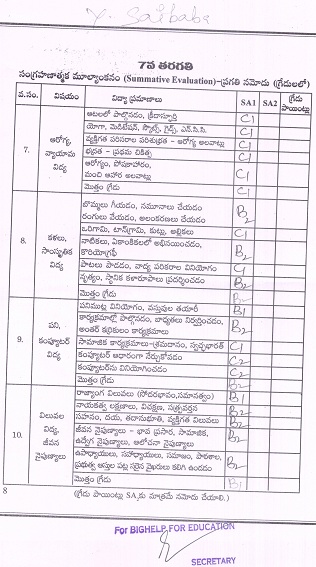 Y. Saibaba
7వ తరగతి
సంగ్రహణాత్మక మూల్యాంకనం (Summative Evaluation)-ప్రగతి నమోదు (గ్రేడులలో)
వ.సం. విషయం విద్యా ప్రమాణాలు SA1 SA2 గ్రేడు పాయింట్లు
7. ఆరోగ్య, వ్యాయామ విద్య
ఆటలలో పాల్గొనడం, క్రీడాస్ఫూర్తి C1
యోగా, మెడిటేషన్, స్కౌట్స్, గైడ్స్, ఎన్.సి.సి. C1
వ్యక్తిగత పరిసరాల పరిశుభ్రత - ఆరోగ్య అలవాట్లు C1
భద్రత - ప్రథమ చికిత్స C1
ఆరోగ్యం, పోషకాహారం,
మంచి ఆహార అలవాట్లు C1
మొత్తం గ్రేడు C1
8. కళలు, సాంస్కృతిక విద్య
బొమ్మలు గీయడం, నమూనాలు చేయడం
రంగులు వేయడం, అలంకరణలు చేయడం B2
ఒరిగామి, టాన్‌గ్రామ్, కుట్లు, అల్లికలు C1
నాటికలు, ఏకాంకికలలో అభినయించడం,
కొరియోగ్రఫీ B2
పాటలు పాడడం, వాద్య పరికరాల వినియోగం C1
నృత్యం, స్థానిక కళారూపాలు ప్రదర్శించడం B2
మొత్తం గ్రేడు B2
9. పని, కంప్యూటర్ విద్య
పనిముట్ల వినియోగం, వస్తువుల తయారీ B1
కార్యక్రమాల్లో పాల్గొనడం, బాధ్యతలు నిర్వర్తించడం,
అంతర కల్లికులం కార్యక్రమాలు B2
సామాజిక కార్యక్రమాలు-శ్రమదానం, స్వచ్ఛభారత్ C1
కంప్యూటర్ ఆధారంగా నేర్చుకోవడం C2
కంప్యూటర్‌ను వినియోగించడం C2
మొత్తం గ్రేడు B2
10. విలువల విద్య, జీవన నైపుణ్యాలు
రాజ్యాంగ విలువలు (సోదరభావం,సమానత్వం) B1
నాయకత్వ లక్షణాలు, విచక్షణ, సత్ప్రవర్తన B2
సమానం, దయ, తదానుభూతి, వ్యక్తిగత విలువలు B2
జీవన నైపుణ్యాలు - భావ ప్రసార, సామాజిక,
ఉద్వేగ నైపుణ్యాలు, ఆలోచనా నైపుణ్యాలు B2
ఉపాధ్యాయులు, సహాధ్యాయులు, సమాజం, పాఠశాల,
ప్రభుత్వ ఆస్తుల పట్ల సరైన వైఖరులు కలిగి ఉండడం B2
మొత్తం గ్రేడు B1
8 (గ్రేడు పాయింట్లు SA2కు మాత్రమే నమోదు చేయాలి.)
For BIGHELP FOR EDUCATION
SECRETARY